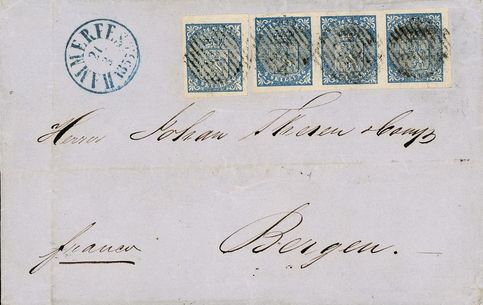 HAMMERFEST
21
1855
Herrn Johan Thesen & Comp
franco
Bergen.